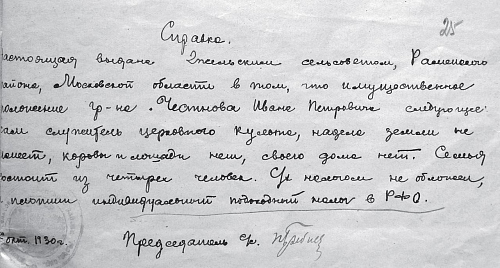 25
Справка.
настоящая выдана Гжельским сельсоветом, Раменского
района, Московской области в том, что имущественное
положение гр-на Честнова Ивана Петровича следующее:
сам служитель церковного культа, надела земли не
имеет, коровы и лошади нет, своего дома нет. Семья
состоит из четырех человек. С/х налогом не обложен,
а платит индивидуальный подоходный налог в РФО.
окт. 1930 г.
Председатель с/с.